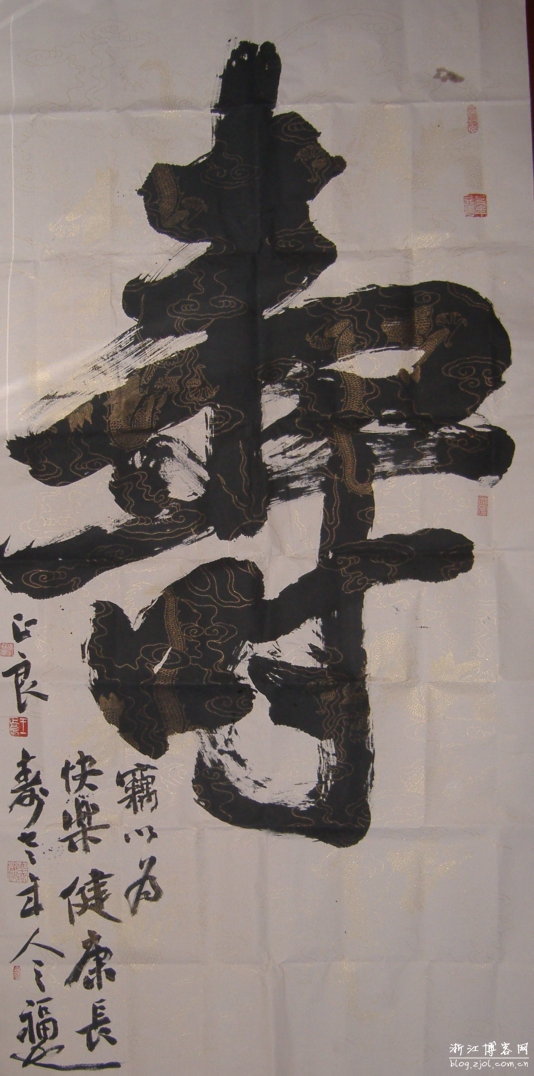 壽
竊以为
快樂健康長
寿老年人之福也
正良
浙江博客网
blog.zjol.com.cn